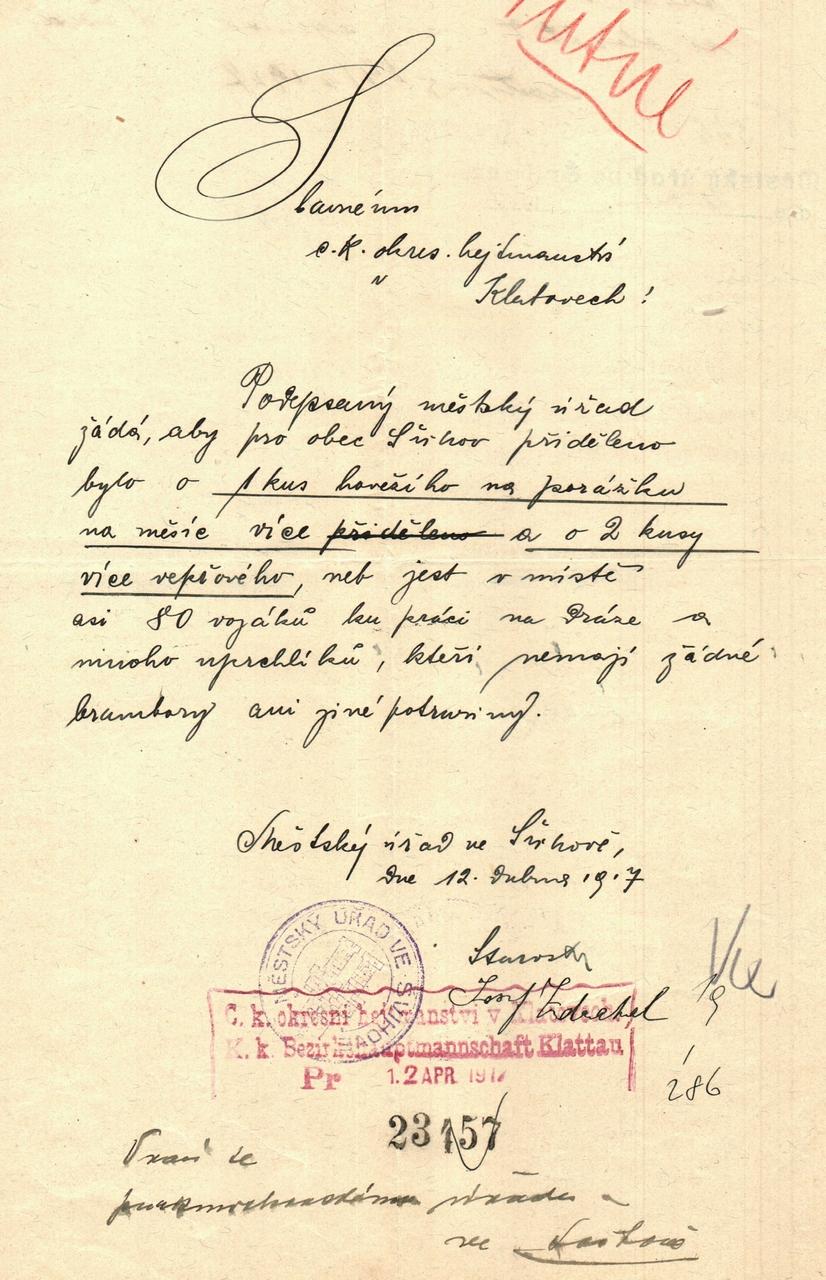 nutné
Slavnému
c. k. okres. hejtmanství
v
Klatovech!
Podepsaný městský úřad
žádá, aby pro obec Švihov přiděleno
bylo o 1 kus hovězího na porážku
na měsíc více přiděleno a o 2 kusy
více vepřového, neb jest v místě
asi 80 vojáků ku práci na dráze a
mnoho uprchlíků, kteří nemají žádné
brambory ani jiné potraviny.
Městský úřad ve Švihově,
dne 12. dubna 1917
MĚSTSKÝ ÚŘAD VE ŠVIHOVĚ
Starosta
Josef
C. k. okresní hejtmanství v Klatovech
K. k. Bezirkshauptmannschaft Klattau
Pr 12 APR 1917
286
23157
Vrací se
úřadu
ve